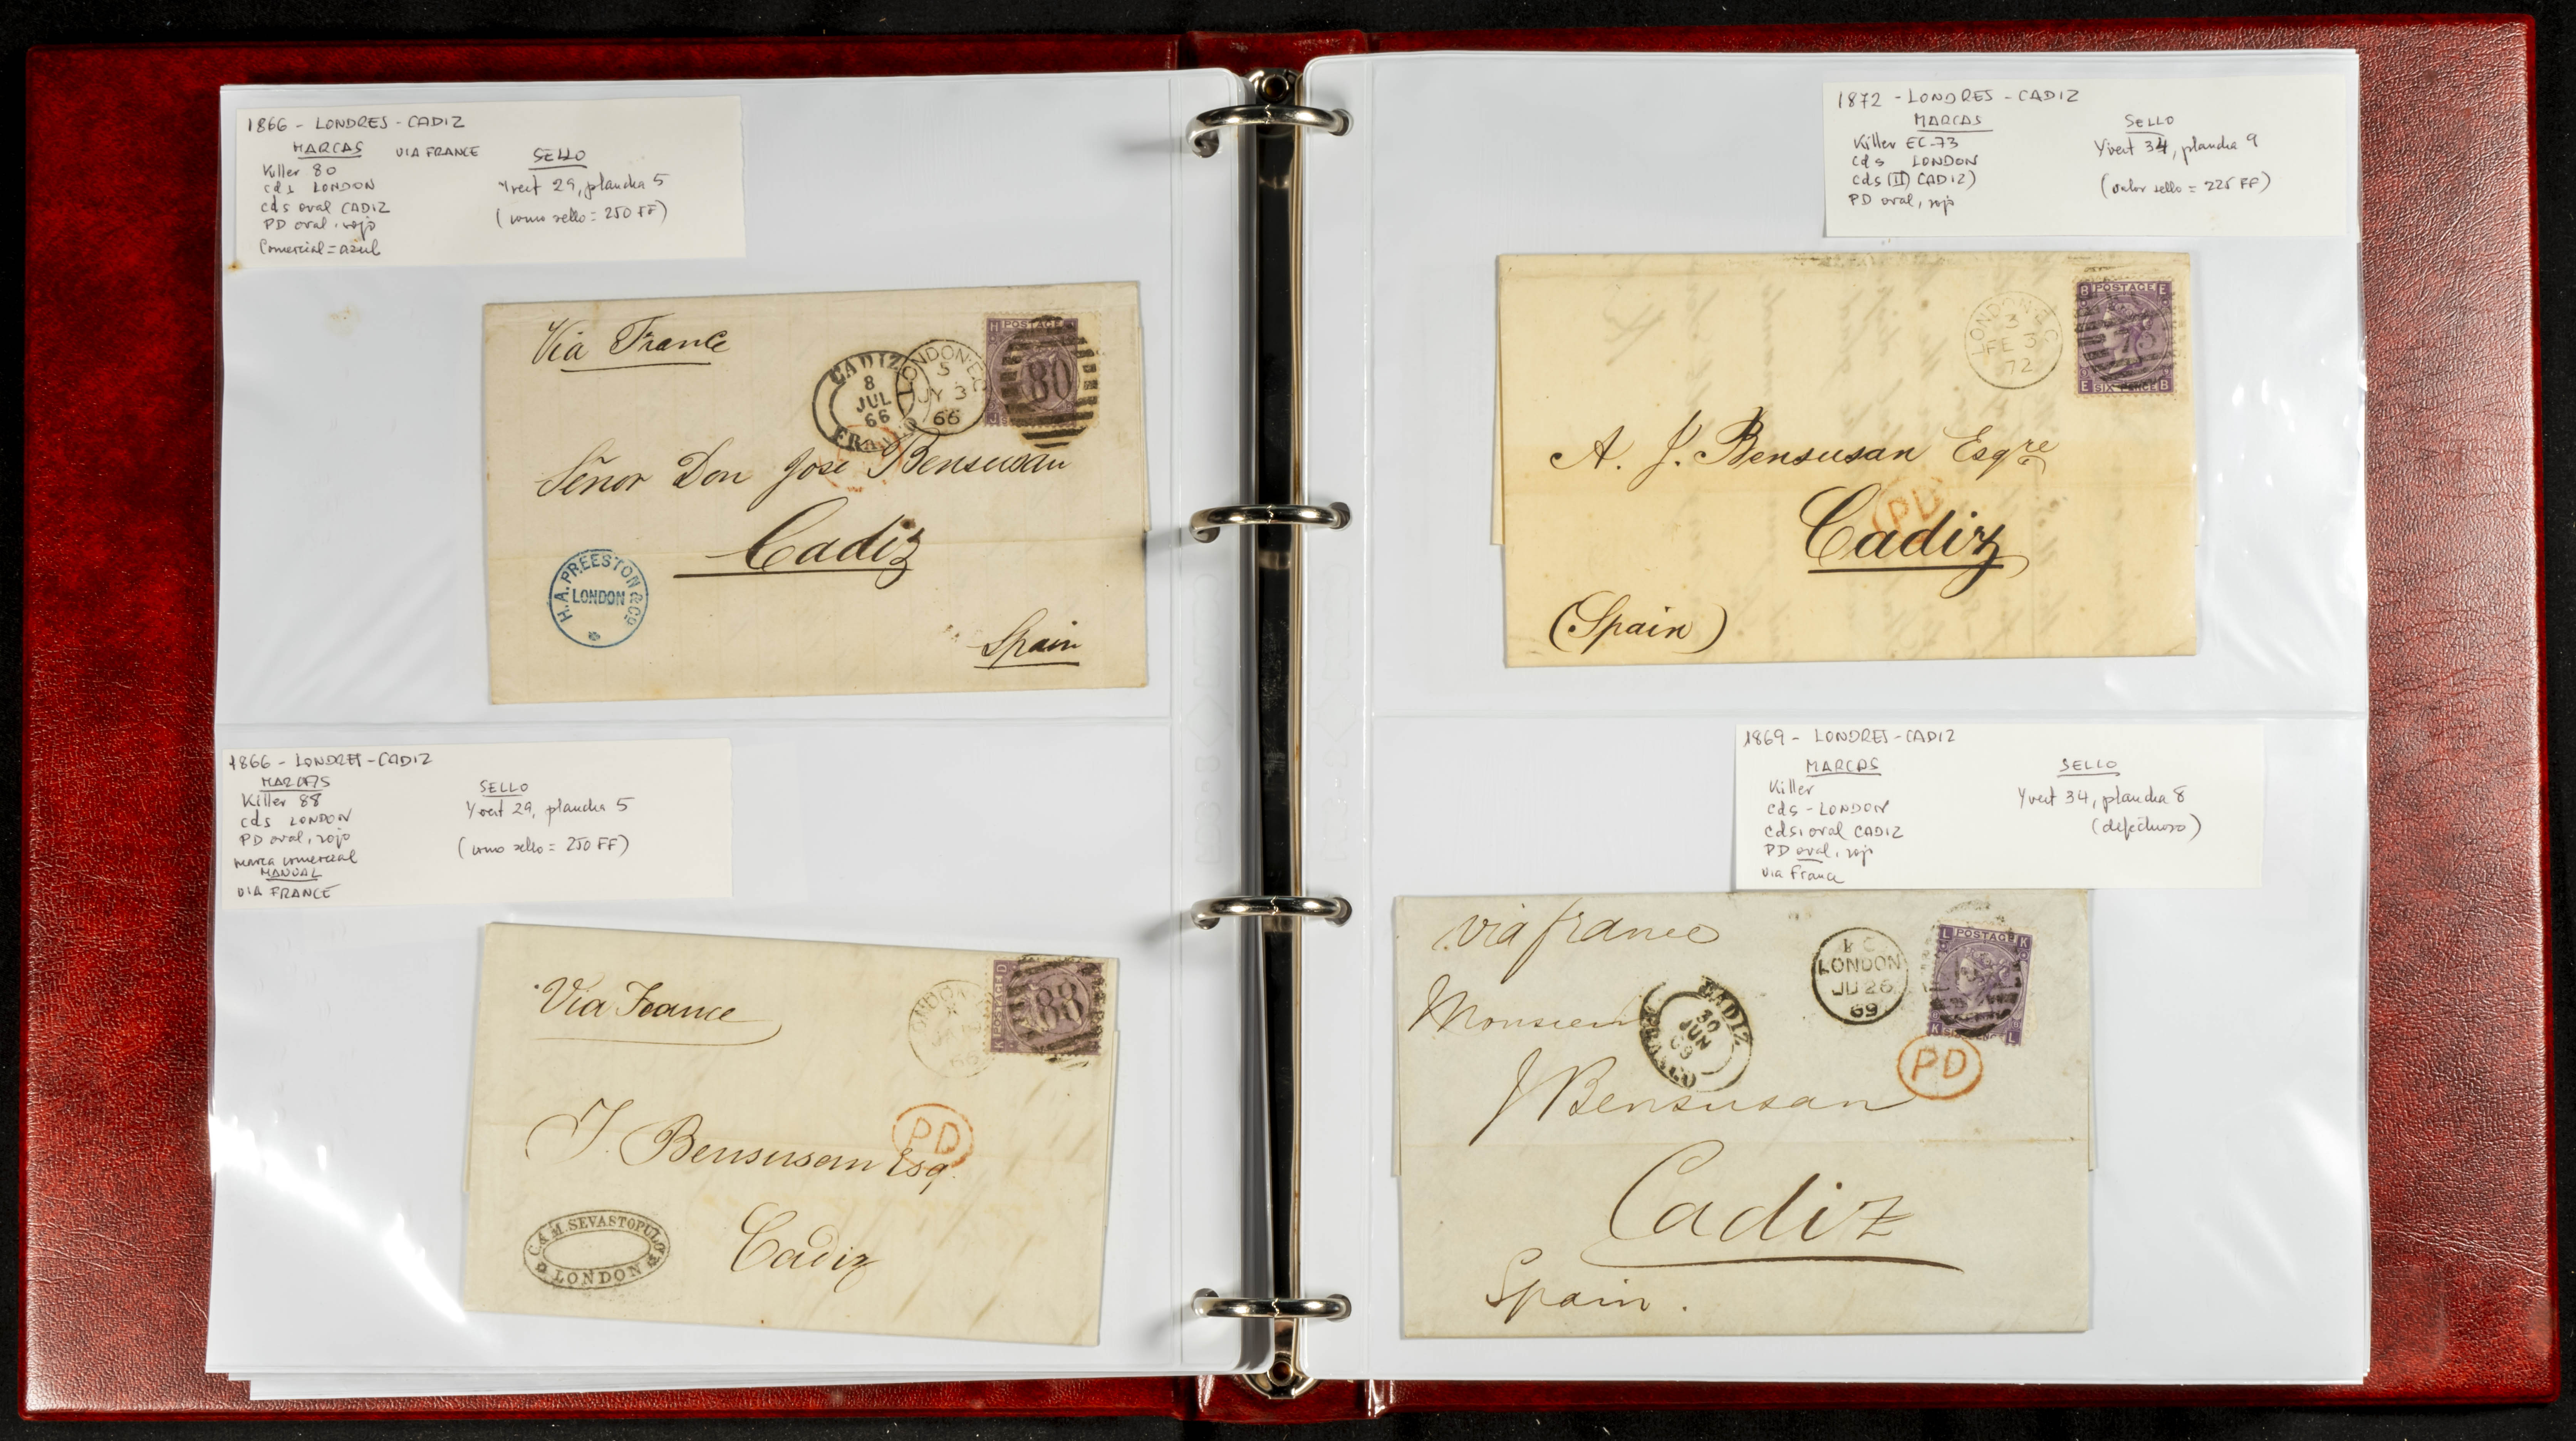 1866 - LONDRES - CADIZ
MARCAS VIA FRANCE SELLO
Killer 80
cds LONDON
cds oval CADIZ
PD oval, rojo
Comercial = azul
Yvert 29, plancha 5
(como sello = 250 FF)
Via France
CADIZ
8
JUL
66
LONDON·EC
5
JY 3
66
H POSTAGE
80
Señor Don Jose Bensusan
Cadiz
Spain
H.A. PREESTON & CO
LONDON
1866 - LONDRES - CADIZ
MARCAS
Killer 88
cds LONDON
PD oval, rojo
marca comercial
MANUAL
VIA FRANCE
SELLO
Yvert 29, plancha 5
(como sello = 250 FF)
Via France
LONDON
66
K POSTAGE D
88
PD
J. Bensusan Esq.
Cadiz
C. & M. SEVASTOPULO
LONDON
1872 - LONDRES - CADIZ
MARCAS
Killer EC-73
cds LONDON
cds (II) CADIZ)
PD oval, rojo
SELLO
Yvert 34, plancha 9
(valor sello = 225 FF)
LONDON E.C
3
FE 3
72
B POSTAGE E
73
E SIX PENCE B
A. J. Bensusan Esqre
PD
Cadiz
(Spain)
1869 - LONDRES - CADIZ
MARCAS
Killer
cds - LONDON
cds, oval CADIZ
PD oval, rojo
via France
SELLO
Yvert 34, plancha 8
(defectuoso)
via france
LONDON
JU 26
69
L POSTAGE K
K L
CADIZ
30
JUN
69
PD
Monsieur
J Bensusan
Cadiz
Spain.